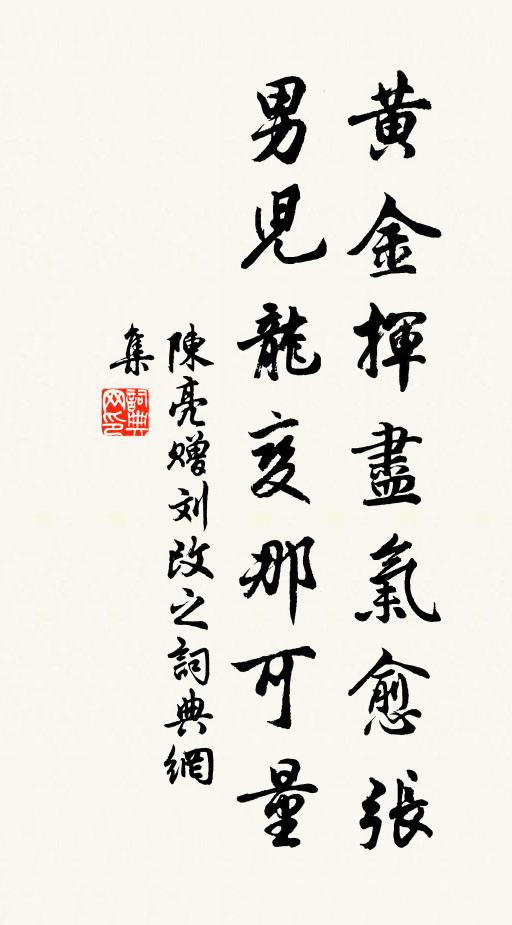 黃金揮盡氣愈張
男兒龍变那可量
陳亮赠刘改之詞典網
集
詞典
网印